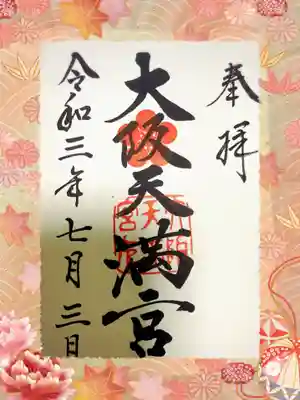 奉拝
大阪天満宮
令和三年七月三日